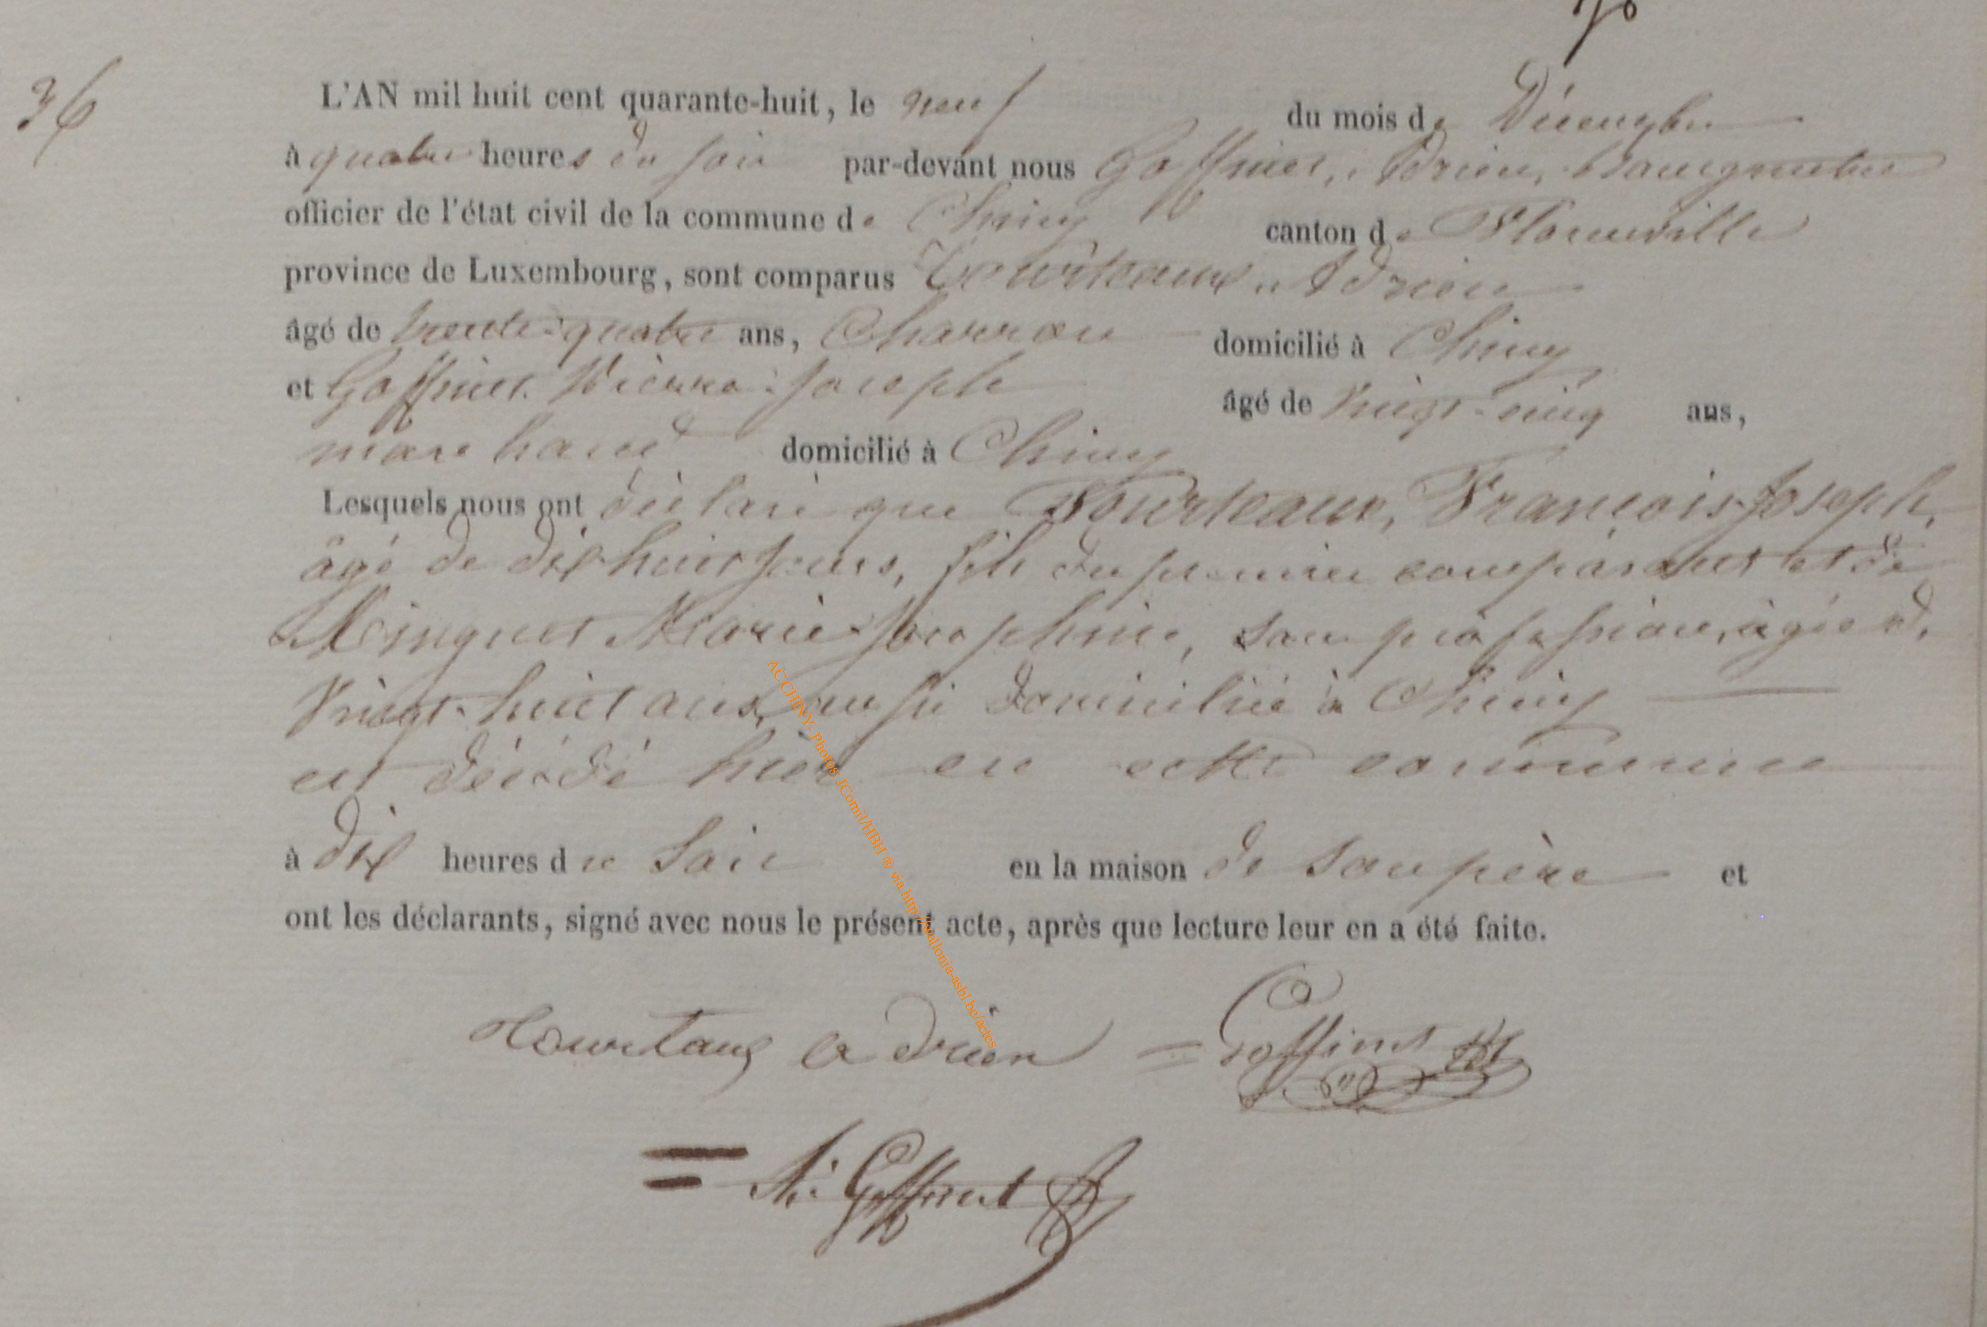 36
L'AN mil huit cent quarante-huit, le neuf du mois de Décembre
à quatre heures du soir par-devant nous Goffinet, Adrien, Bourgmestre
officier de l'état civil de la commune de Chiny canton de Florenville
province de Luxembourg, sont comparus Tourteaux, Adrien
âgé de trente-quatre ans, Charron domicilié à Chiny
et Goffinet Pierre-Joseph âgé de vingt-cinq ans,
marchand domicilié à Chiny
Lesquels nous ont déclaré que Tourteaux, François-Joseph,
âgé de dix huit jours, fils du premier comparant et de
Minguet Marie-Josephine, sans profession, âgée de
vingt-huit ans, aussi domiciliée à Chiny
est décédé hier en cette commune
à dix heures du soir en la maison de son père et
ont les déclarants, signé avec nous le présent acte, après que lecture leur en a été faite.
Tourtaux adrien = Goffinet
= A: Goffinet
AC CHINY - Photos JComil/HBH ® via http://wallonia-asbl.be/actes